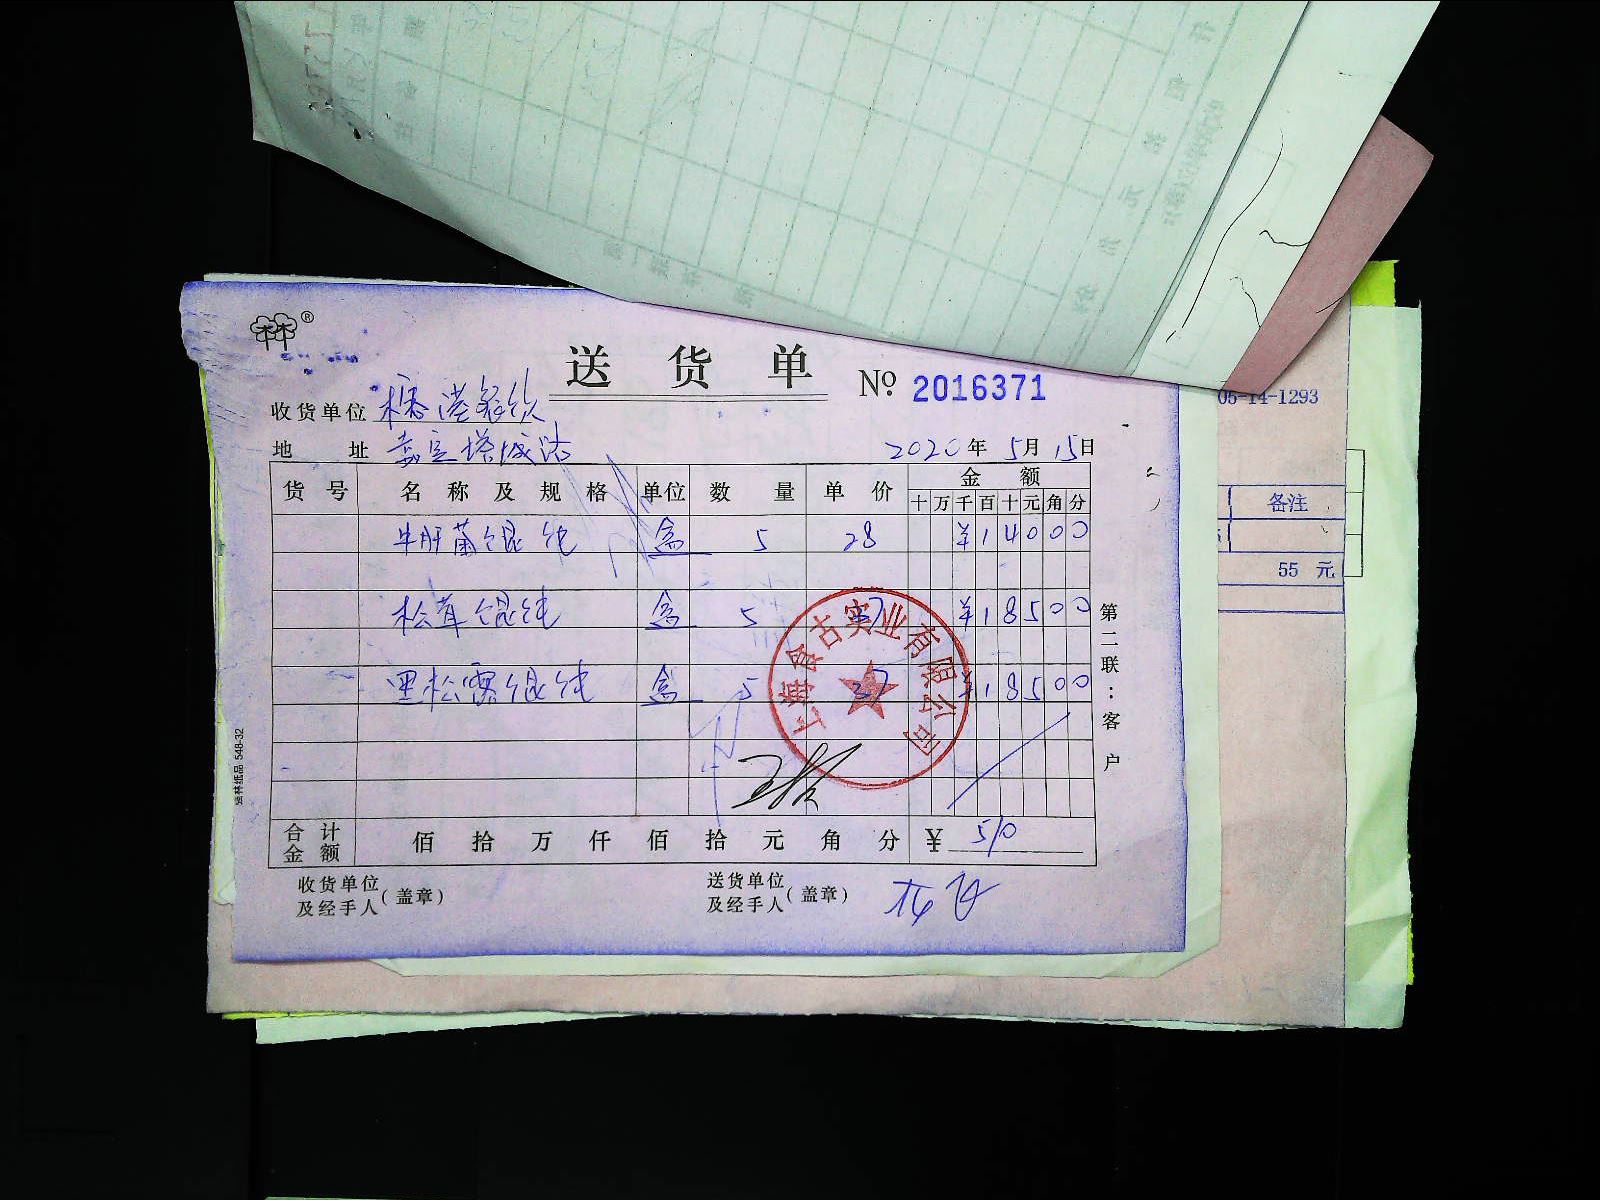 ®
送 货 单 № 2016371
收货单位 榛港餐饮
地 址 嘉定塔城路 2020年 5月 15日
货 号 名 称 及 规 格 单位 数 量 单 价 金 额
十 万 千 百 十 元 角 分
牛肝菌馄饨 盒 5 28 ¥14000
松茸馄饨 盒 5 37 ¥18500
黑松露馄饨 盒 5 37 ¥18500
上海食古实业有限公司
合 计 金 额 佰 拾 万 仟 佰 拾 元 角 分 ¥ 510
收货单位
及经手人 (盖章)
送货单位
及经手人 (盖章)
第二联:客户
548-32
05-14-1293
备注
55 元